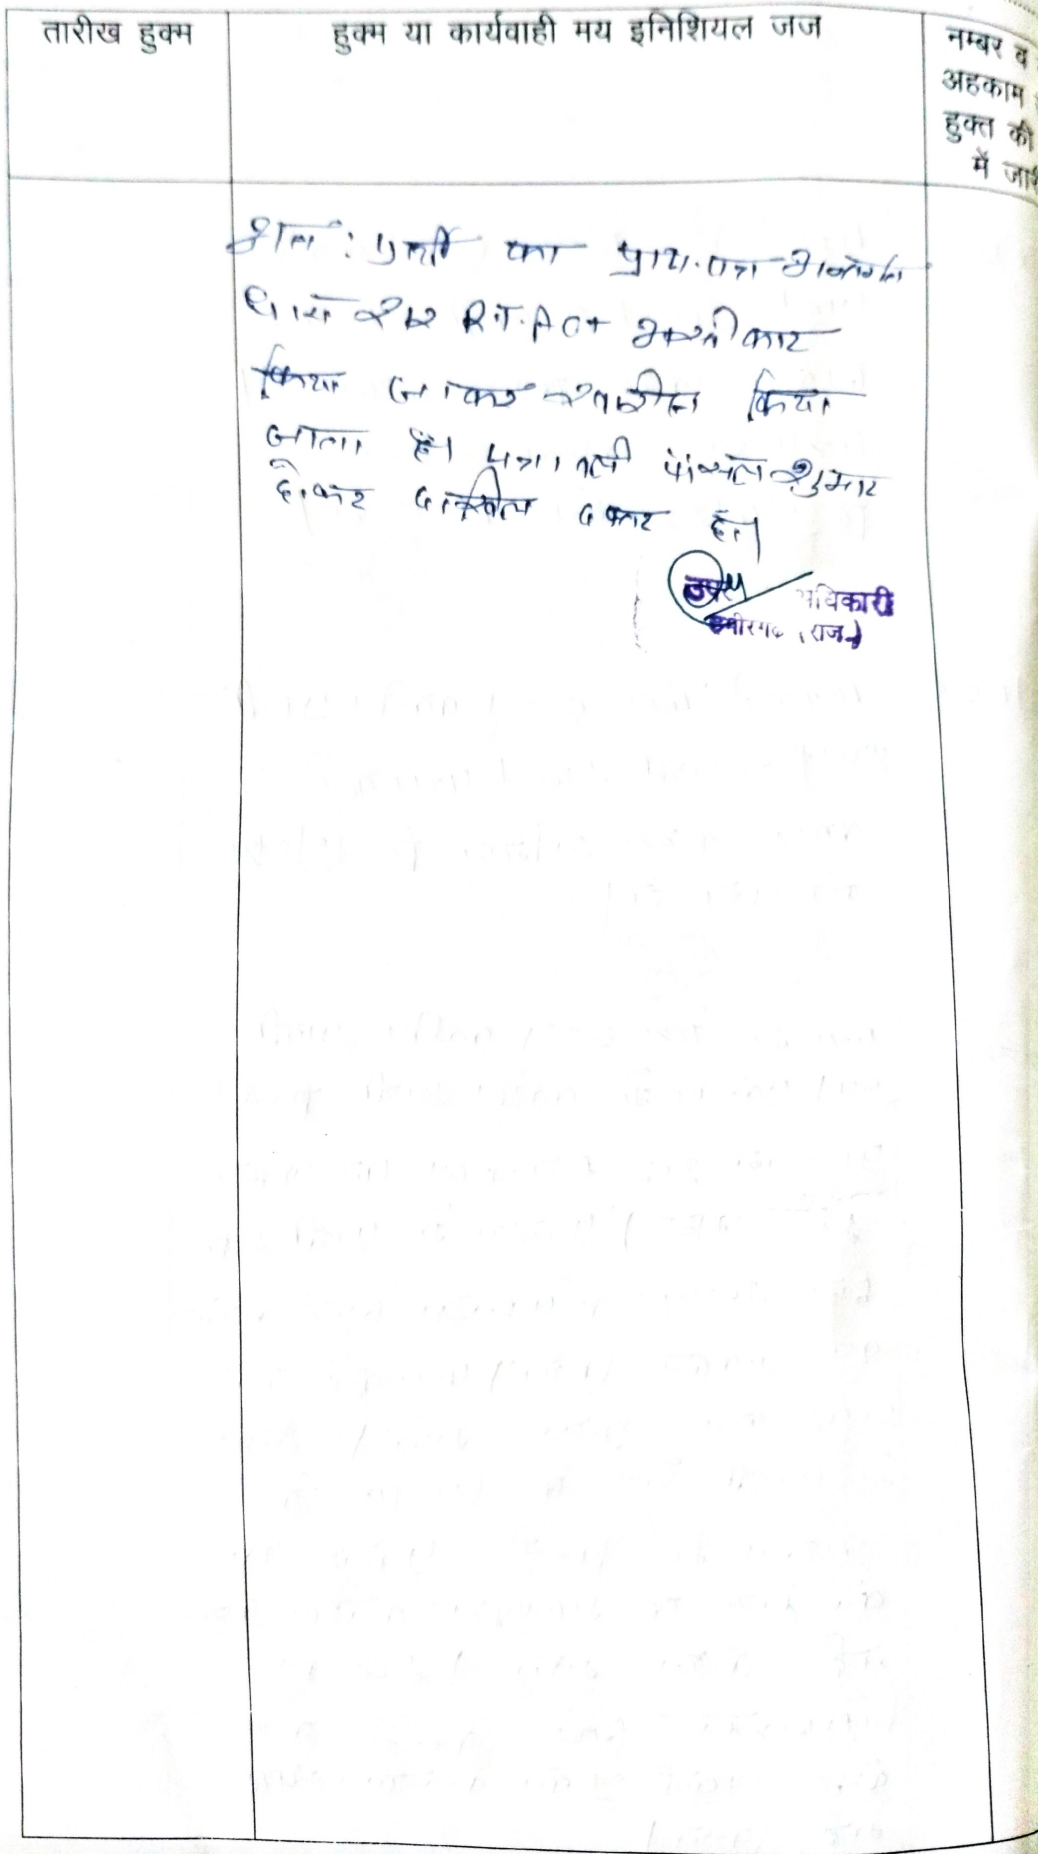 तारीख हुक्म
हुक्म या कार्यवाही मय इनिशियल जज
नम्बर व
अहकाम
हुक्त की
में जारी
अतः प्रार्थी का प्रार्थ. पत्र अन्तर्गत
धारा 212 R.T. Act अस्वीकार
किया जाकर खारीज किया
जाता है। पत्रावली फैसल शुमार
होकर दाखिल दफ्तर हो।
अधिकारी
हमीरगढ (राज.)